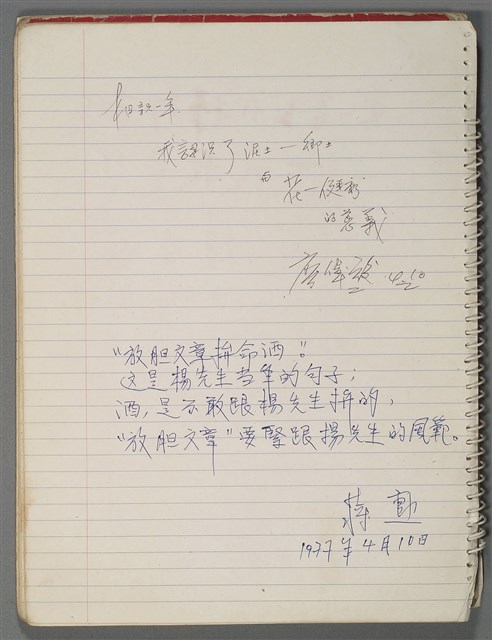 相識一年
我認識了泥土—鄉土
和
花—
的意義
廖偉竣 4.10
"放胆文章拚命酒"。
这是楊先生当年的句子；
酒，是不敢跟楊先生拼的，
"放胆文章"要緊跟楊先生的風範。
蔣勳
1977年4月10日